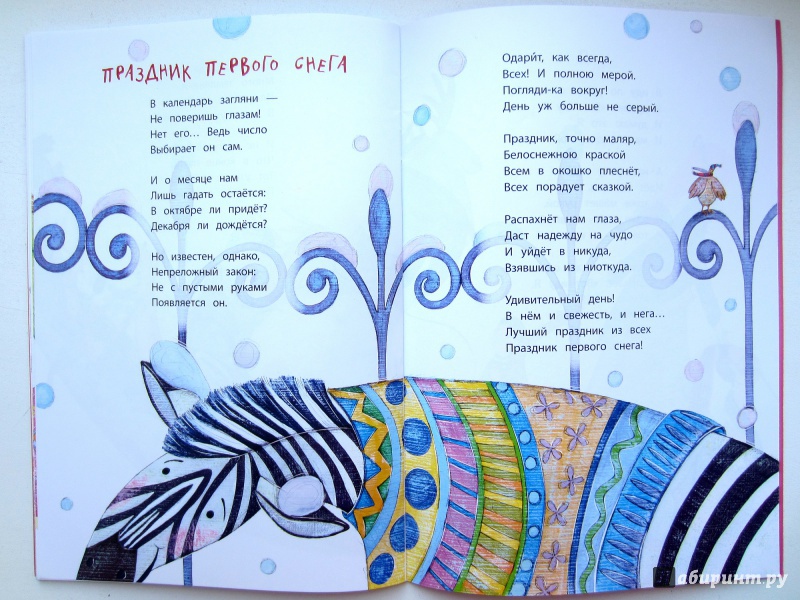 ПРАЗДНИК ПЕРВОГО СНЕГА
В календарь загляни —
Не поверишь глазам!
Нет его... Ведь число
Выбирает он сам.
И о месяце нам
Лишь гадать остаётся:
В октябре ли придёт?
Декабря ли дождётся?
Но известен, однако,
Непреложный закон:
Не с пустыми руками
Появляется он.
Одари́т, как всегда,
Всех! И полною мерой.
Погляди-ка вокруг!
День уж больше не серый.
Праздник, точно маляр,
Белоснежною краской
Всем в окошко плеснёт,
Всех порадует сказкой.
Распахнёт нам глаза,
Даст надежду на чудо
И уйдёт в никуда,
Взявшись из ниоткуда.
Удивительный день!
В нём и свежесть, и нега...
Лучший праздник из всех
Праздник первого снега!
Лабиринт.ру